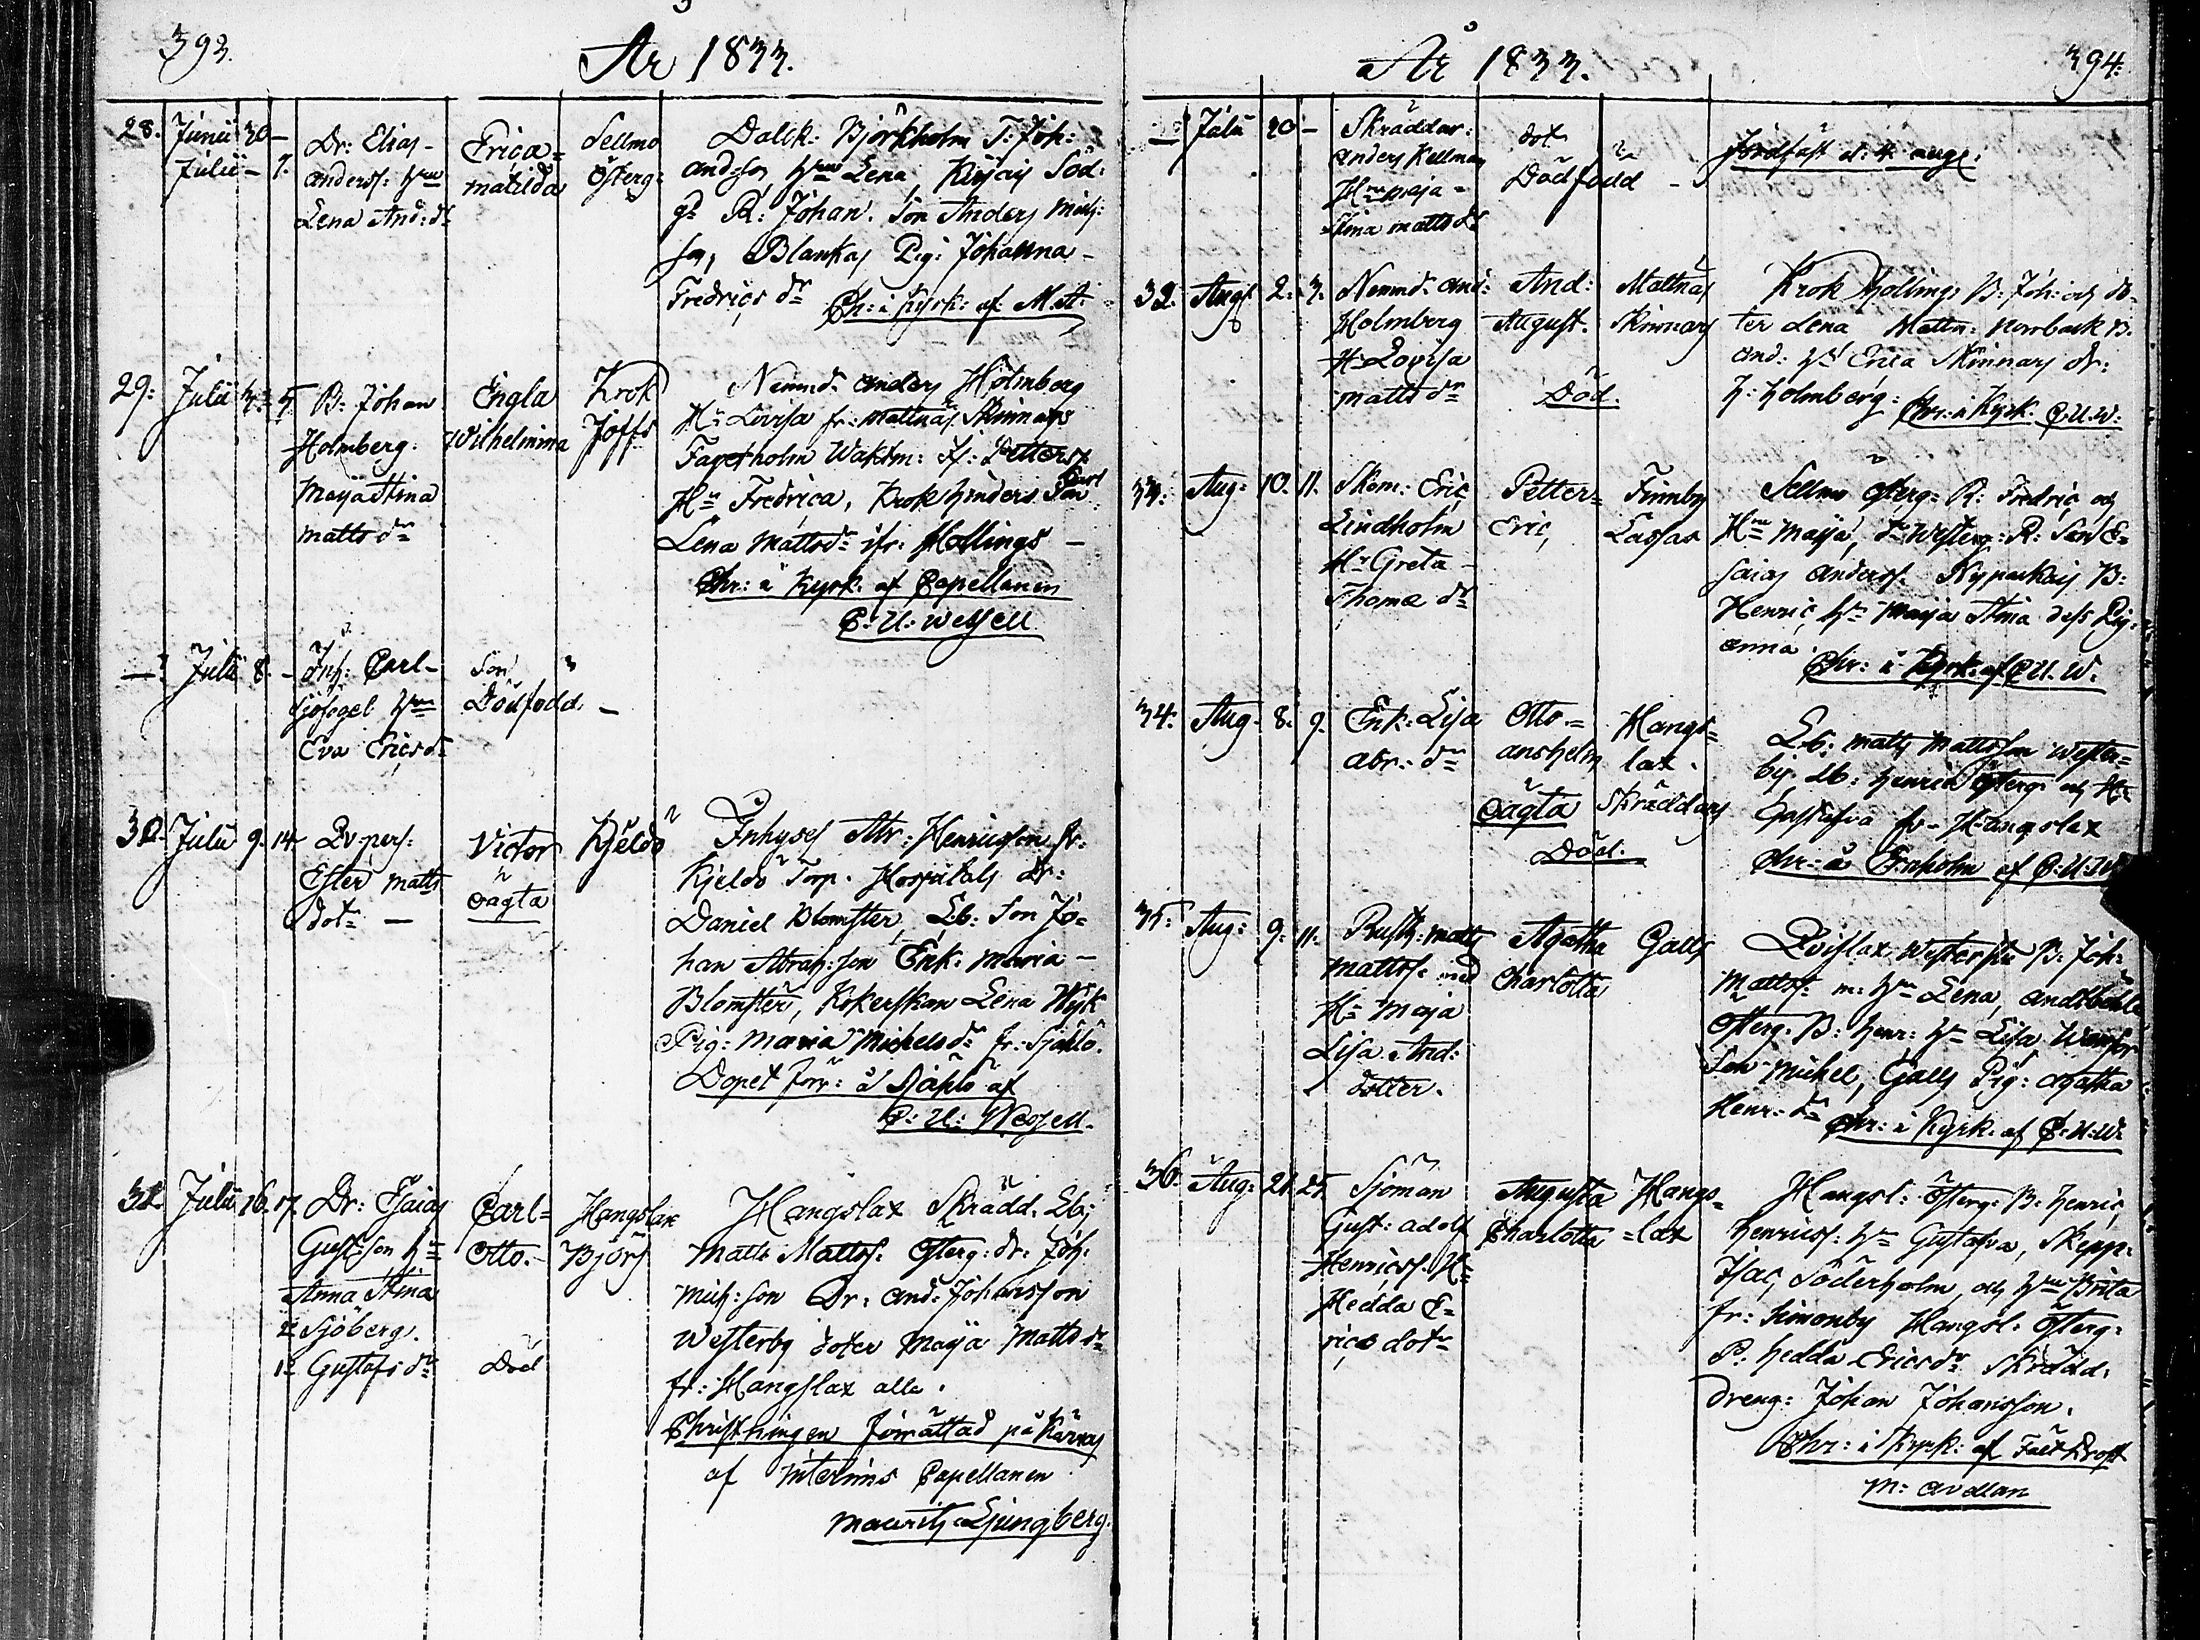 393.
År 1833.
28. Junii 30 –
Julii – 7.
Dr: Elias
Anderss: Hu
Lena And: dr
Erica
Matilda
Sellmo
Österg:
Dalck: Björkholm T: Joh:
Andsson Hu Lena
gd R: Johan. Son Anders Mich:
son, Blankas Pig: Johanna
Fredrics dr Ch: i Kyrk: af M.A.
29: Julii 5
B: Johan
Holmberg.
Maja Stina
Matts dr
Engla
Wilhelmina
Krok
Joffs
Nemnd: Anders Holmberg
Hu Lovisa fr: Mattnäs Skinnars
Fagerholm Waktm:
Hu Fredrica, Krok Son Carl
Lena Mattsdr ifr: Hollings –
Chr: i Kyrk. af Capellanen
C: U: Wessell
– Julii 8. –
Inh: Carl
Sjöfogel Hu
Eva Ericsdr
Son
Dödfödd. –
30. Julii 9. 14
Qv:pers:
Ester Matts
dotr –
Victor
oägta
Kjeldö
Inhyses Abr: Henricsson fr:
Kjeldö Torp. Hospitals Dr:
Daniel Blomster, Lb: Son Jo=
han Abrah:son Enk: Maria –
Blomster, Kokerskan Lena Wijk
Pig: Maria Michelsdr fr: Själö.
Dopet förr: å Själö af
C: U: Wessell.
31. Julii 16. 17
Dr: Esaias
Gust:son Hu
Anna Stina
Sjöberg.
Gustafs dr
Carl=
Otto.
Död
Hangslax
Björs
Hangslax Skrädd. Lb:
Matts Mattss: Österg: dr: Joh:
Mich:son Dr: And: Johansson
Westerby doter Maja Mattsdr
fr: Hangslax alla.
Christningen förrättad på Kärras
af Interims Capellanen
Mauritz Ljungberg.
394.
År 1833.
– Julii 20 –
Skräddar:
Anders Kellman
Hu Maja
Stina Mattsdr
dot
Dödfödd –
Jordfäst d: 4 Aug:
32. Augs 2. 3.
Nemnd: And:
Holmberg
Hu Lovisa
Matts dr
And:
August.
Död.
Mattnäs
Skinnars
Krok Hollings B: Joh: och do=
ter Lena Mattn: Norrback B.
And: Hu Erica Skinnars dr:
J: Holmberg: Chr: i Kyrk. C:U:W:
33. Aug: 10. 11.
Skom: Eric
Lindholm
Hu Greta
Thoma dr
Petter=
Eric,
Finnby
Lassas
Sellmo Österg: R: Fredric och
Hu Maja, dr Westerg: R: Son E=
saias Anderss. B:
Henric Hu Maja Stina dess Pig:
Anna. Chr: i Kyrk: af C U. W.
34. Aug. 8. 9.
Enk: Lisa
Abr. dr
Otto=
Anshelm
oägta
Död.
Hangs=
lax.
Skräddars
Lb: Matts Mattsson Wester=
by. Lb: Henric Österg: och Hu
Gustafva fr. Hangslax
Chr: å Enholm af C:U:W
35. Aug: 9. 11.
Rusth: Matts
Mattss: med
Hu Maja
Lisa And:
dotter.
Agatha
Charlotta
Galls
Qvislax B: Joh:
Mattss: m: Hu Lena, Andsböle
Österg: B: Henr: Hu Lisa
Son Michel, Galls Pig: Agatha
Henr: dr Chr: i Kyrk. af C:U:W:
36. Aug: 21. 25.
Sjöman
Gust: Adolf
Henricss. Hu
Hedda E=
rics dotr
Augusta
Charlotta
Hangs=
=lax
Hangsl: Österg: B: Henric
Henricss: Hu Gustafva, Skepp:
Isac Söderholm, och Hu Brita
fr: Simonby Hangsl: Österg:
P: Hedda Ericsdr Skrädd:
dreng: Johan Johansson.
Chr: i Kyrk: af Fält Prost
M: Avellan